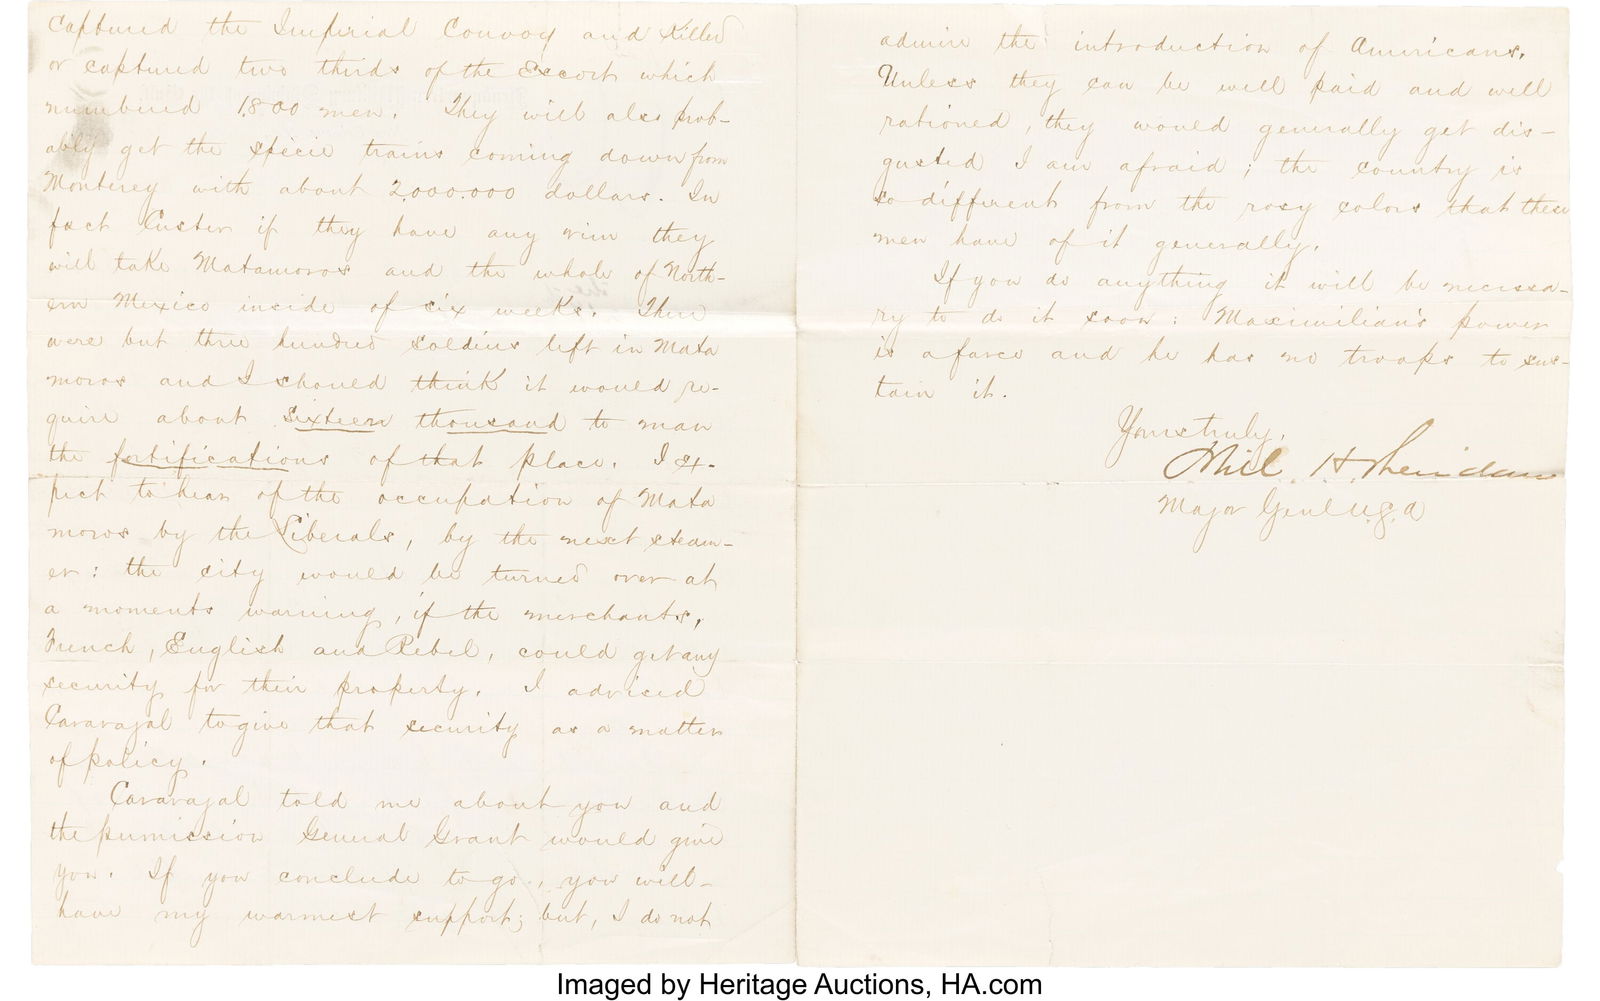 captured the Imperial Convoy and Killed
or captured two thirds of the Escort which
numbered 1800 men. They will also prob-
ably get the specie trains coming down from
Monterey with about 2,000.000 dollars. In
fact Custer if they have any vim they
will take Matamoros and the whole of North-
ern Mexico inside of six weeks. There
were but three hundred soldiers left in Mata
moros and I should think it would re-
quire about sixteen thousand to man
the fortifications of that place. I ex-
pect to hear of the occupation of Mata
moros by the Liberals, by the next steam-
er: the city would be turned over at
a moments warning, if the merchants,
French, English and Rebel, could get any
security for their property. I advised
Caravajal to give that security as a matter
of policy.
Caravajal told me about you and
the permission General Grant would give
you. If you conclude to go, you will-
have my warmest support; but, I do not
admire the introduction of Americans.
Unless they can be well paid and well
rationed, they would generally get dis-
gusted I am afraid; the country is
so different from the rosy colors that these
men have of it generally.
If you do anything it will be necessa-
ry to do it soon: Maximilian's power
is a farce and he has no troops to sus-
tain it.
Yours truly,
Phil. H. Sheridan
Major Genl U.S.A
Imaged by Heritage Auctions, HA.com